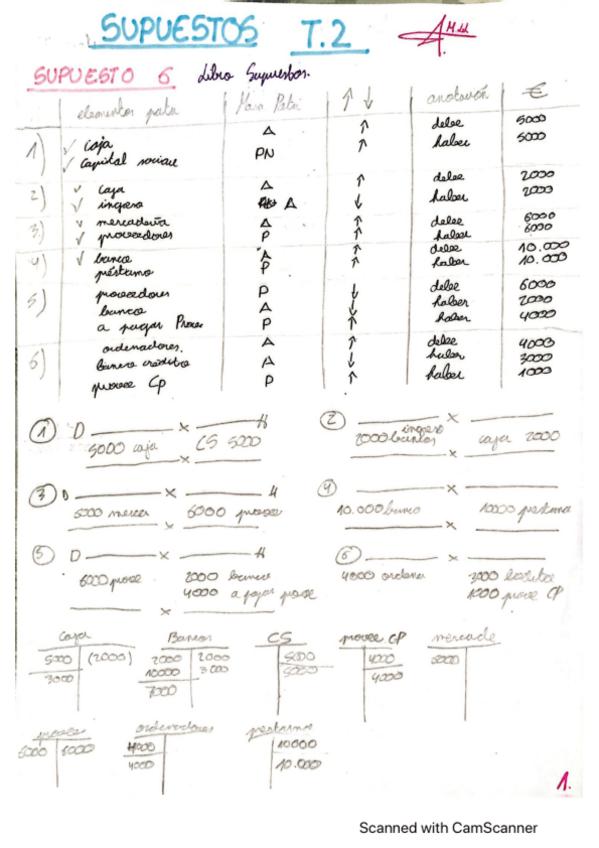 SUPUESTOS T.2
SUPUESTO 6 Libro Supuestos.
elementos patri Masa Patri ↑ ↓ anotación €
1) ✓ caja A ↑ debe 5000
✓ capital social PN ↑ haber 5000
2) ✓ caja A ↑ debe 2000
✓ ingreso A ↓ haber 2000
3) ✓ mercadería A ↑ debe 6000
✓ proveedores P ↑ haber 6000
4) ✓ banco A ↑ debe 10.000
préstamo P ↑ haber 10.000
5) proveedores P ↓ debe 6000
banco A ↓ haber 2000
a pagar Provee P ↑ haber 4000
6) ordenadores A ↑ debe 4000
banco crédito A ↓ haber 3000
provee CP P ↑ haber 1000
1 D x H
5000 caja CS 5000
x
2 x
ingreso
2000 bancos caja 2000
x
3 D x H
6000 merca 6000 provee
x
4 x
10.000 banco 10000 prestamo
x
5 D x H
6000 provee 2000 banco
4000 a pagar provee
x
6 x
4000 ordena 3000
1000 provee CP
Caja Bancos CS provee CP mercade
5000 (2000) 2000 2000 5000 4000 6000
3000 10000 3000 5000 4000
7000
provee ordenadores prestamo
6000 6000 4000 10000
4000 10.000
1.
Scanned with CamScanner